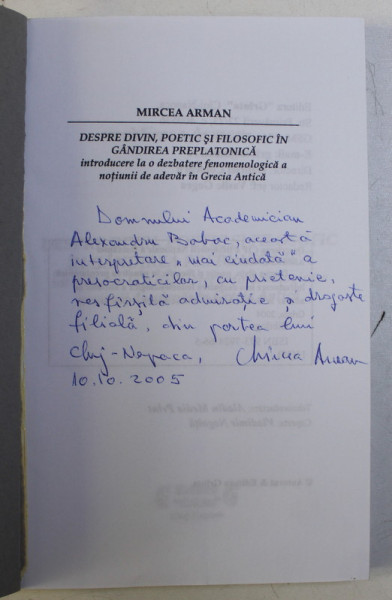 MIRCEA ARMAN
DESPRE DIVIN, POETIC ŞI FILOSOFIC ÎN
GÂNDIREA PREPLATONICĂ
introducere la o dezbatere fenomenologică a
noţiunii de adevăr în Grecia Antică
Domnului Academician
Alexandru Boboc, această
interpretare „mai ciudată" a
presocraticilor, cu prietenie,
nesfîrşită admiraţie şi dragoste
filială, din partea lui
Cluj-Napoca, Mircea Arman
10.10.2005